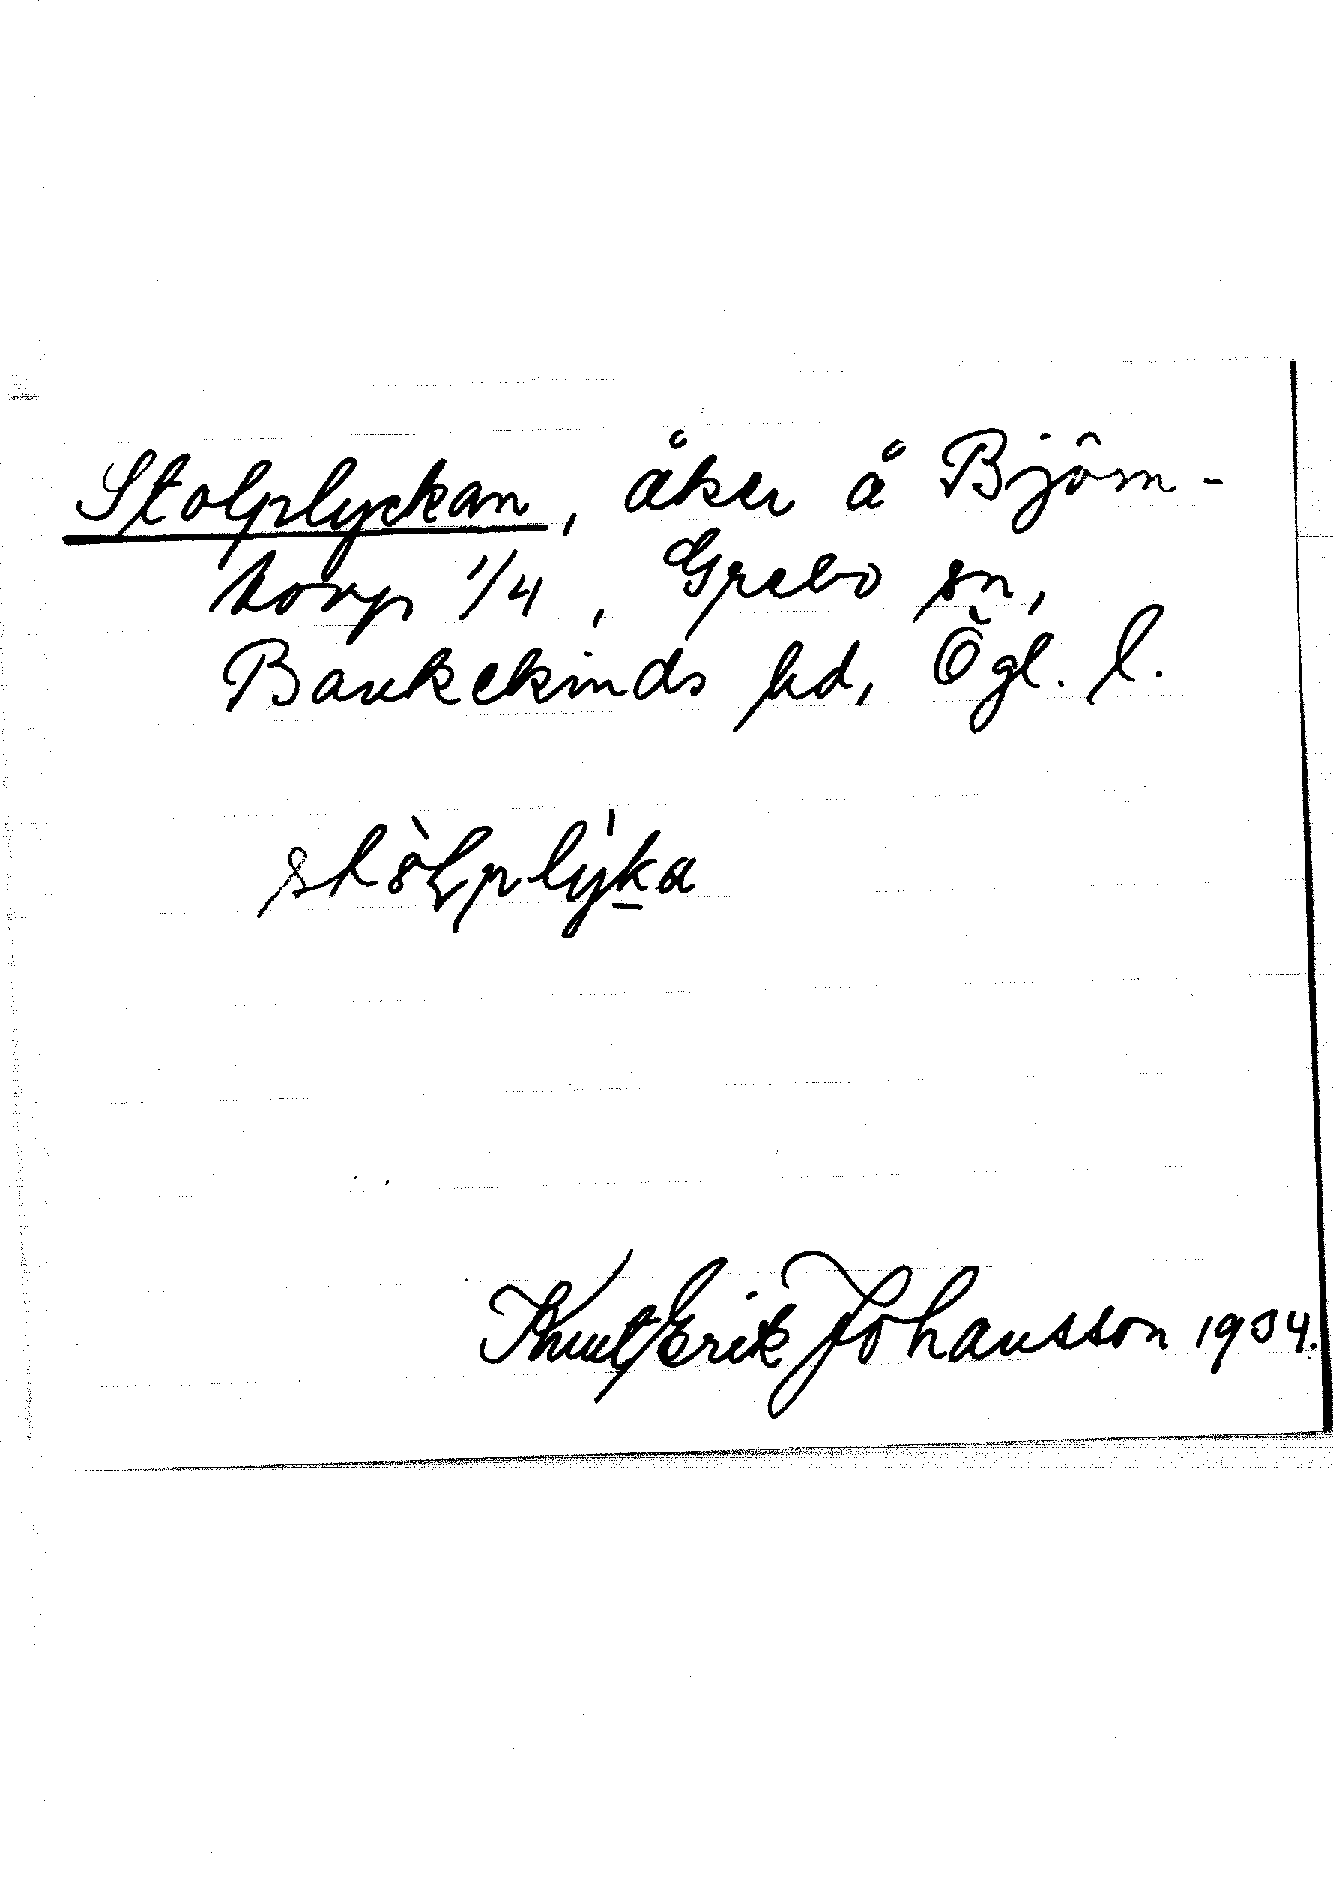 Stolplyckan, åker å Björn-
torp 1/4, Grebo sn,
Bankekinds hd, Ögl. l.
Knut Erik Johansson 1934.